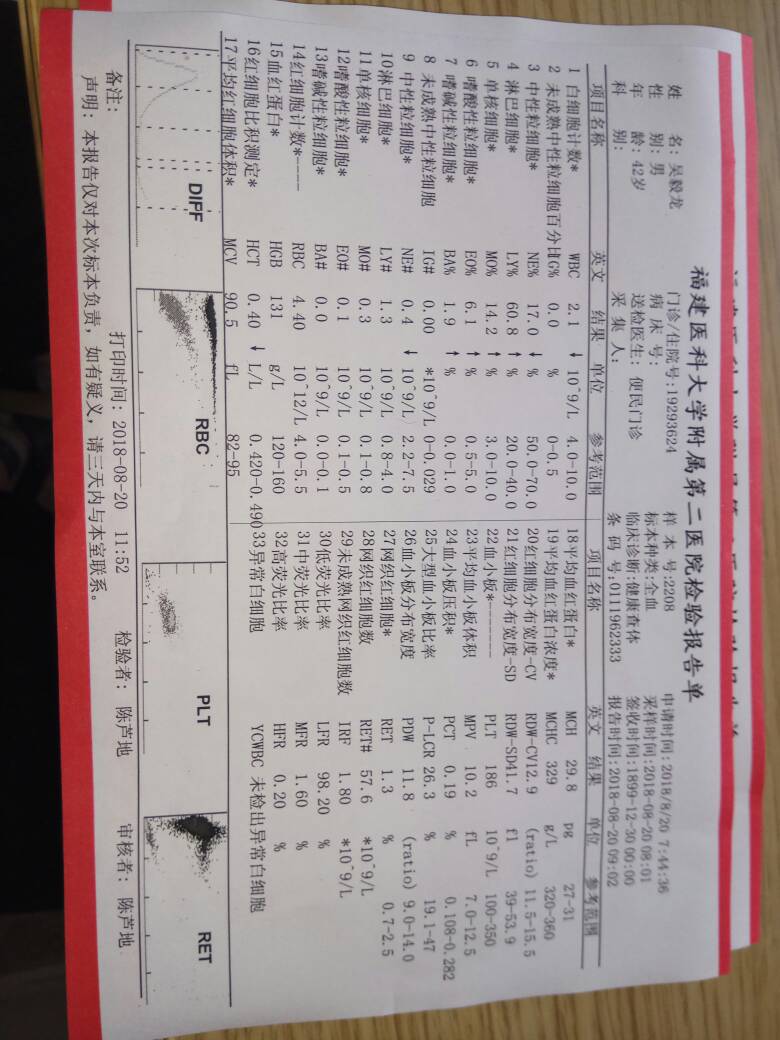 福建医科大学附属第二医院检验报告单
姓 名:吴毅龙 门诊/住院号:19293624 样 本 号:2208 申请时间:2018/8/20 7:44:36
性 别:男 病 床 号: 标本种类:全血 采样时间:2018-08-20 08:01
年 龄:42岁 送检医生:便民门诊 临床诊断:健康查体 签收时间:1899-12-30 00:00
科 别: 采 集 人: 条 码 号:0111962333 报告时间:2018-08-20 09:02
项目名称 英文 结果 单位 参考范围 项目名称 英文 结果 单位 参考范围
1 白细胞计数* WBC 2.1 ↓ 10^9/L 4.0-10.0 18平均血红蛋白* MCH 29.8 pg 27-31
2 未成熟中性粒细胞百分比IG% 0.0 % 0-0.5 19平均血红蛋白浓度* MCHC 329 g/L 320-360
3 中性粒细胞* NE% 17.0 ↓ % 50.0-70.0 20红细胞分布宽度-CV RDW-CV12.9 (ratio) 11.5-15.5
4 淋巴细胞* LY% 60.8 ↑ % 20.0-40.0 21红细胞分布宽度-SD RDW-SD41.7 fl 39-53.9
5 单核细胞* MO% 14.2 ↑ % 3.0-10.0 22血小板*------ PLT 186 10^9/L 100-350
6 嗜酸性粒细胞* EO% 6.1 ↑ % 0.5-5.0 23平均血小板体积 MPV 10.2 fL 7.0-12.5
7 嗜碱性粒细胞* BA% 1.9 ↑ % 0.0-1.0 24血小板压积* PCT 0.19 % 0.108-0.282
8 未成熟中性粒细胞 IG# 0.00 *10^9/L 0-0.029 25大型血小板比率 P-LCR 26.3 % 19.1-47
9 中性粒细胞* NE# 0.4 ↓ 10^9/L 2.2-7.5 26血小板分布宽度 PDW 11.8 (ratio) 9.0-14.0
10淋巴细胞* LY# 1.3 10^9/L 0.8-4.0 27网织红细胞* RET 1.3 % 0.7-2.5
11单核细胞* MO# 0.3 10^9/L 0.1-0.8 28网织红细胞数 RET# 57.6 *10^9/L
12嗜酸性粒细胞* EO# 0.1 10^9/L 0.1-0.5 29未成熟网织红细胞数 IRF 1.80 *10^9/L
13嗜碱性粒细胞* BA# 0.0 10^9/L 0.0-0.1 30低荧光比率 LFR 98.20 %
14红细胞计数*---- RBC 4.40 10^12/L 4.0-5.5 31中荧光比率 MFR 1.60 %
15血红蛋白* HGB 131 g/L 120-160 32高荧光比率 HFR 0.20 %
16红细胞比积测定* HCT 0.40 ↓ L/L 0.420-0.490 33异常白细胞 YCWBC 未检出异常白细胞
17平均红细胞体积* MCV 90.5 fL 82-95
DIFF RBC PLT RET
备注: 打印时间:2018-08-20 11:52 检验者:陈芦地 审核者:陈芦地
声明:本报告仅对本次标本负责,如有疑义,请三天内与本室联系。